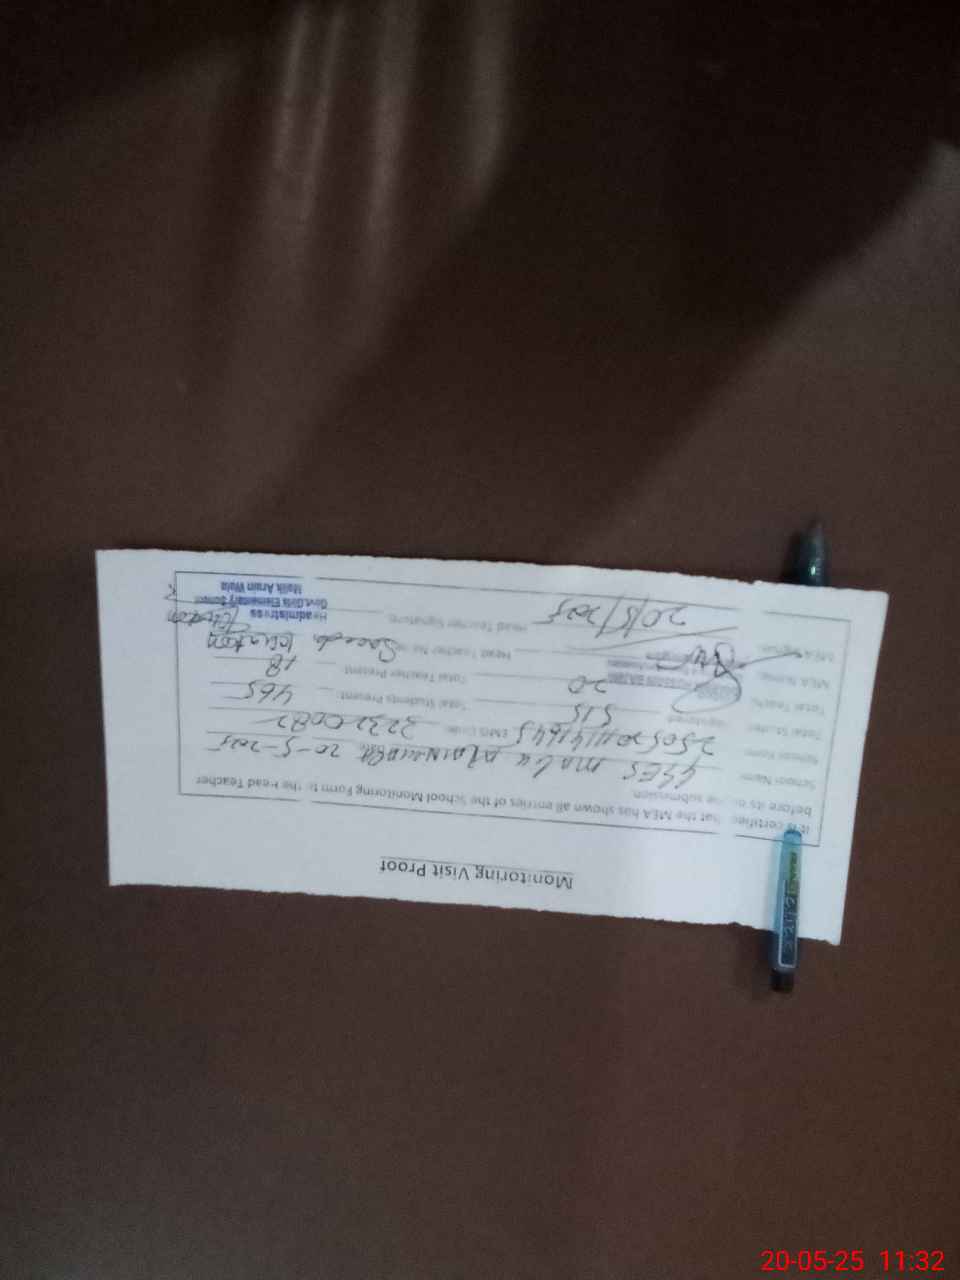 Monitoring Visit Proof
It is certified that the MEA has shown all entries of the School Monitoring Form to the Head Teacher
before its submission.
School Name GGES Malik Arain Wala 20-5-2025
School Visit EMIS Code: 32320082
Total Student Registered 515 Total Students Present 465
Total Teache 20 Total Teacher Present 18
MEA Name: Head Teacher Na Saeeda Khaton
MEA Signatu Head Teacher Signature:
20/5/2025
Headmistress
Govt.Girls Elementary School
Malik Arain Wala
20-05-25 11:32